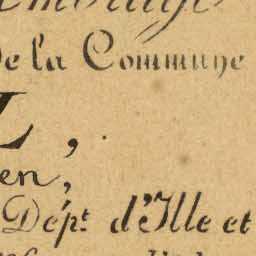 de la Commune
L,
en,
Dépt. d'Ille et